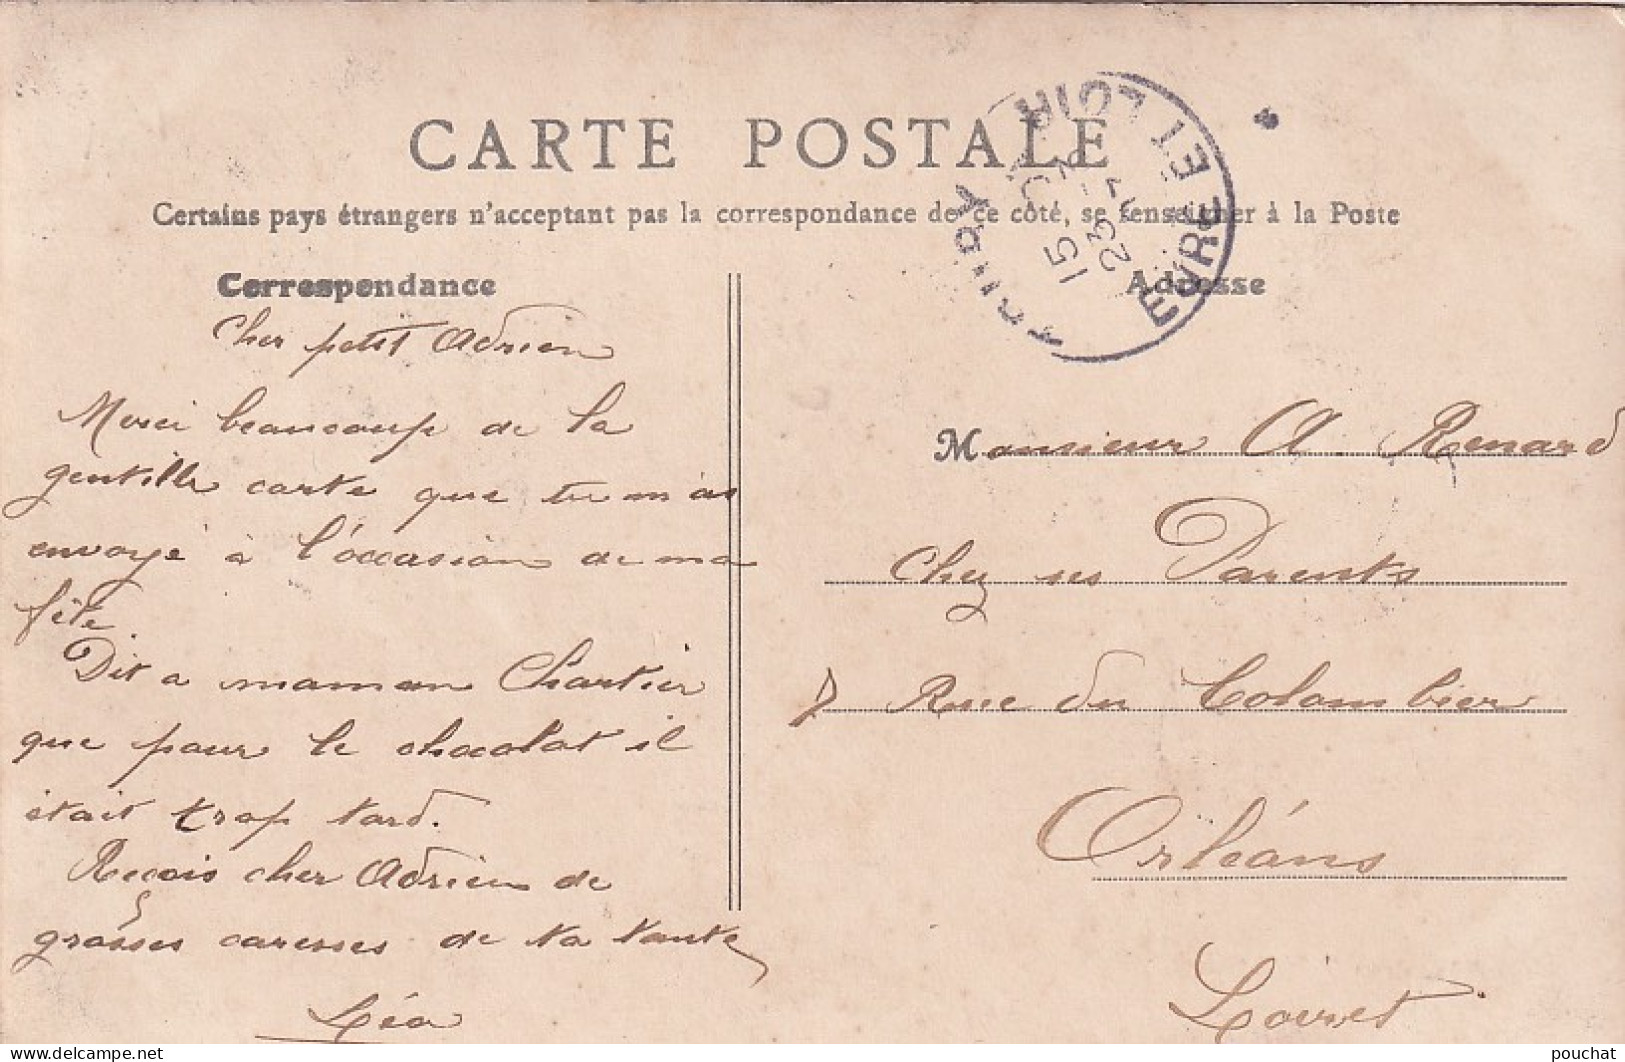 CARTE POSTALE
Certains pays étrangers n'acceptant pas la correspondance de ce côté, se renseigner à la Poste
Correspondance
Cher petit Adrien
Merci beaucoup de la
gentille carte que tu m'as
envoyé à l'occasion de ma
fête
Dit a maman Chartier
que pour le chocolat il
était trop tard.
Reçois cher Adrien de
grosses caresses de ta tante
Léa
TOURY
EURE ET LOIR
15
23
Adresse
Monsieur A. Renard
Chez ses Parents
7 Rue du Colombier
Orléans
Loiret
delcampe.net
pouchat